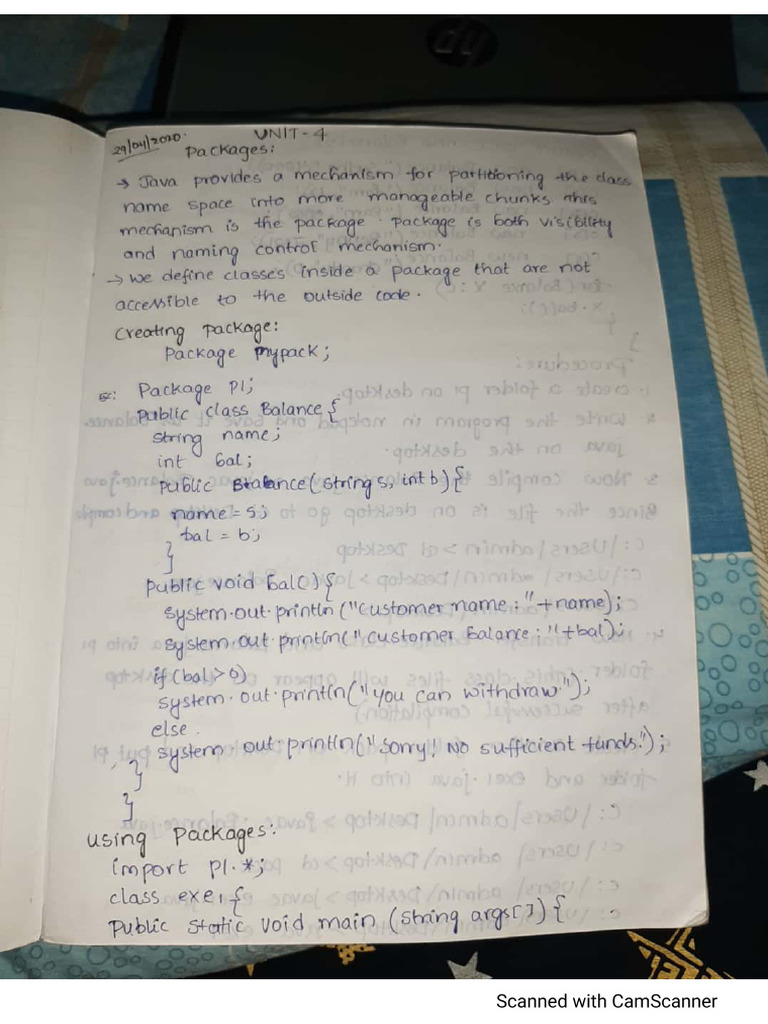 29/04/2020.
UNIT-4
Packages:
→ Java provides a mechanism for partitioning the class
name space into more manageable chunks this
mechanism is the package. package is both visibility
and naming control mechanism.
→ we define classes inside a package that are not
accessible to the outside code.
Creating package:
Package mypack;
Ex: Package P1;
public class Balance {
String name;
int bal;
public Balance(String s, int b) {
name = s;
bal = b;
}
public void bal() {
System.out.println("Customer name : "+name);
System.out.println("Customer Balance : "+bal);
if (bal>0)
System.out.println("you can withdraw.");
else.
System.out.println("Sorry! No sufficient funds.");
}
}
using packages:
import p1.*;
class exe1 {
Public static void main (String args[]) {
Scanned with CamScanner